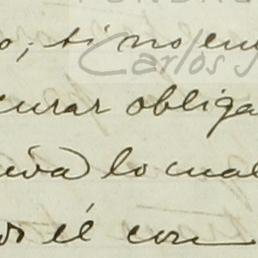 FUNDAC
o; si no en
Carlos S
curar obliga
eva) lo cual
él con